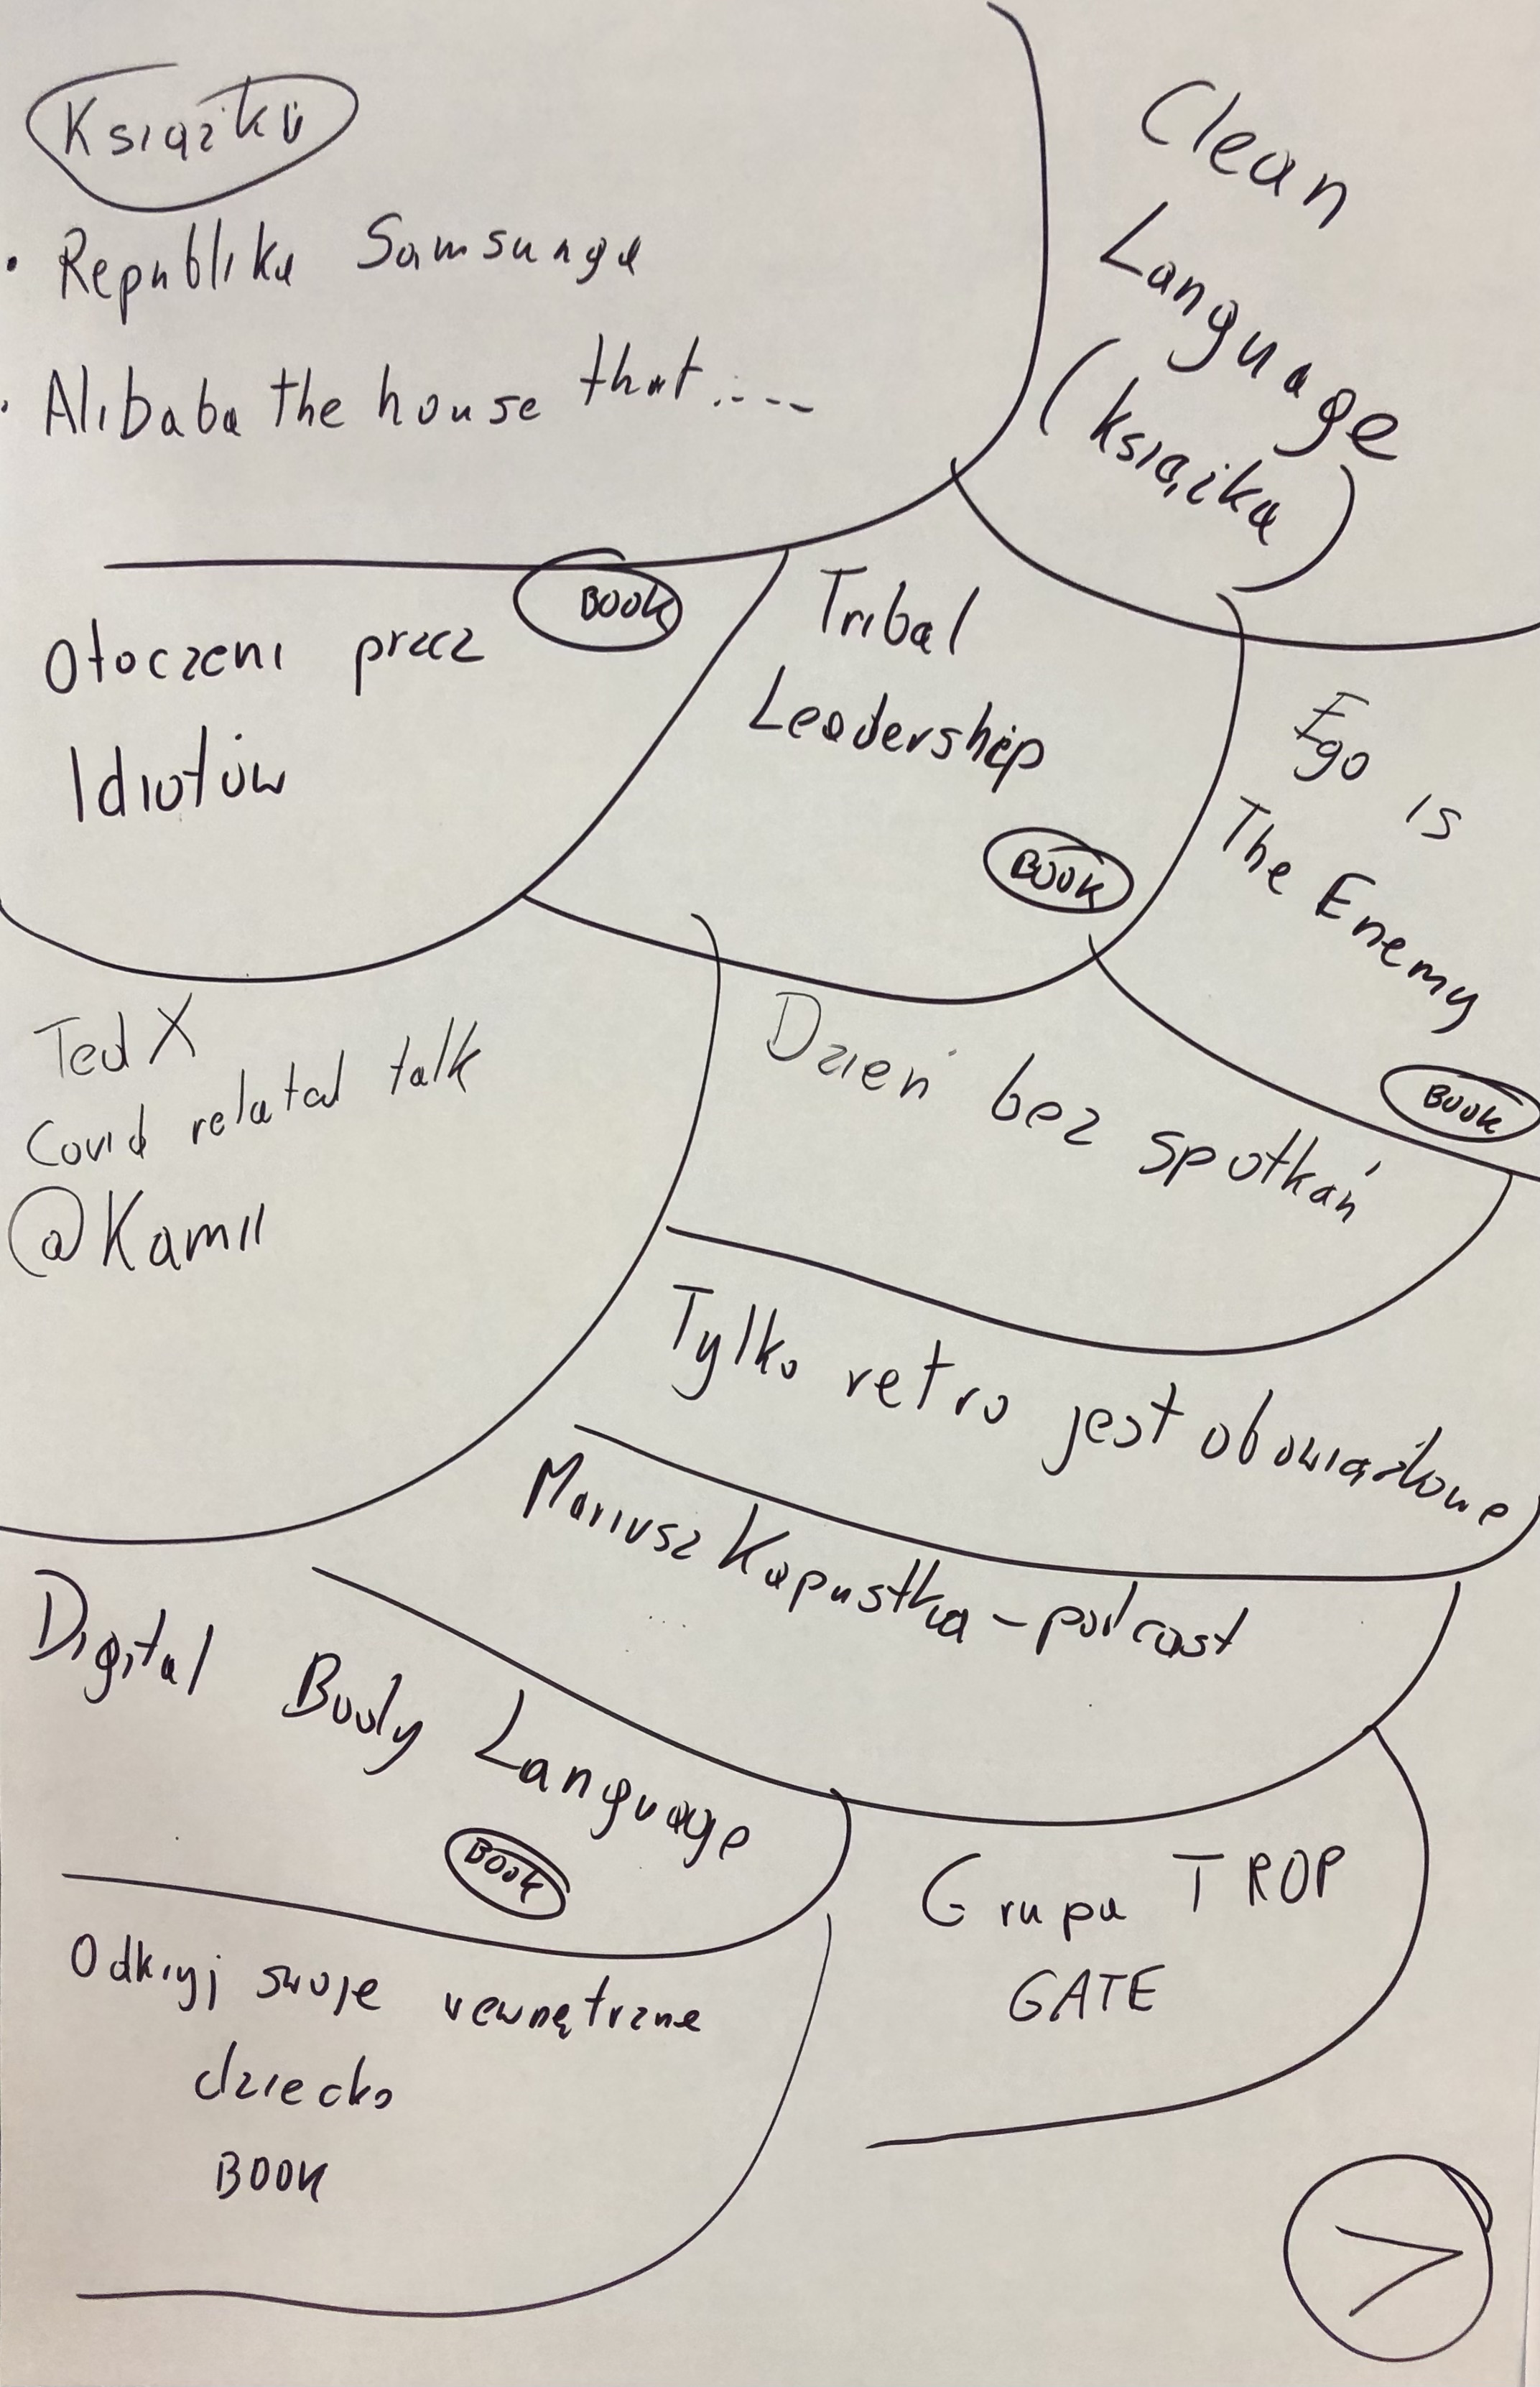 Książki
• Republika Samsunga
• Alibaba the house that....
Clean
Language
(książka)
BOOK
Otoczeni przez
Idiotów
Tribal
Leadership
BOOK
Ego is
The Enemy
BOOK
TedX
Covid related talk
@Kamil
Dzień bez spotkań
Tylko retro jest obowiązkowe
Mariusz Kapustka - podcast
Digital Body Language
BOOK
Grupa TROP
GATE
Odkryj swoje wewnętrzne
dziecko
BOOK